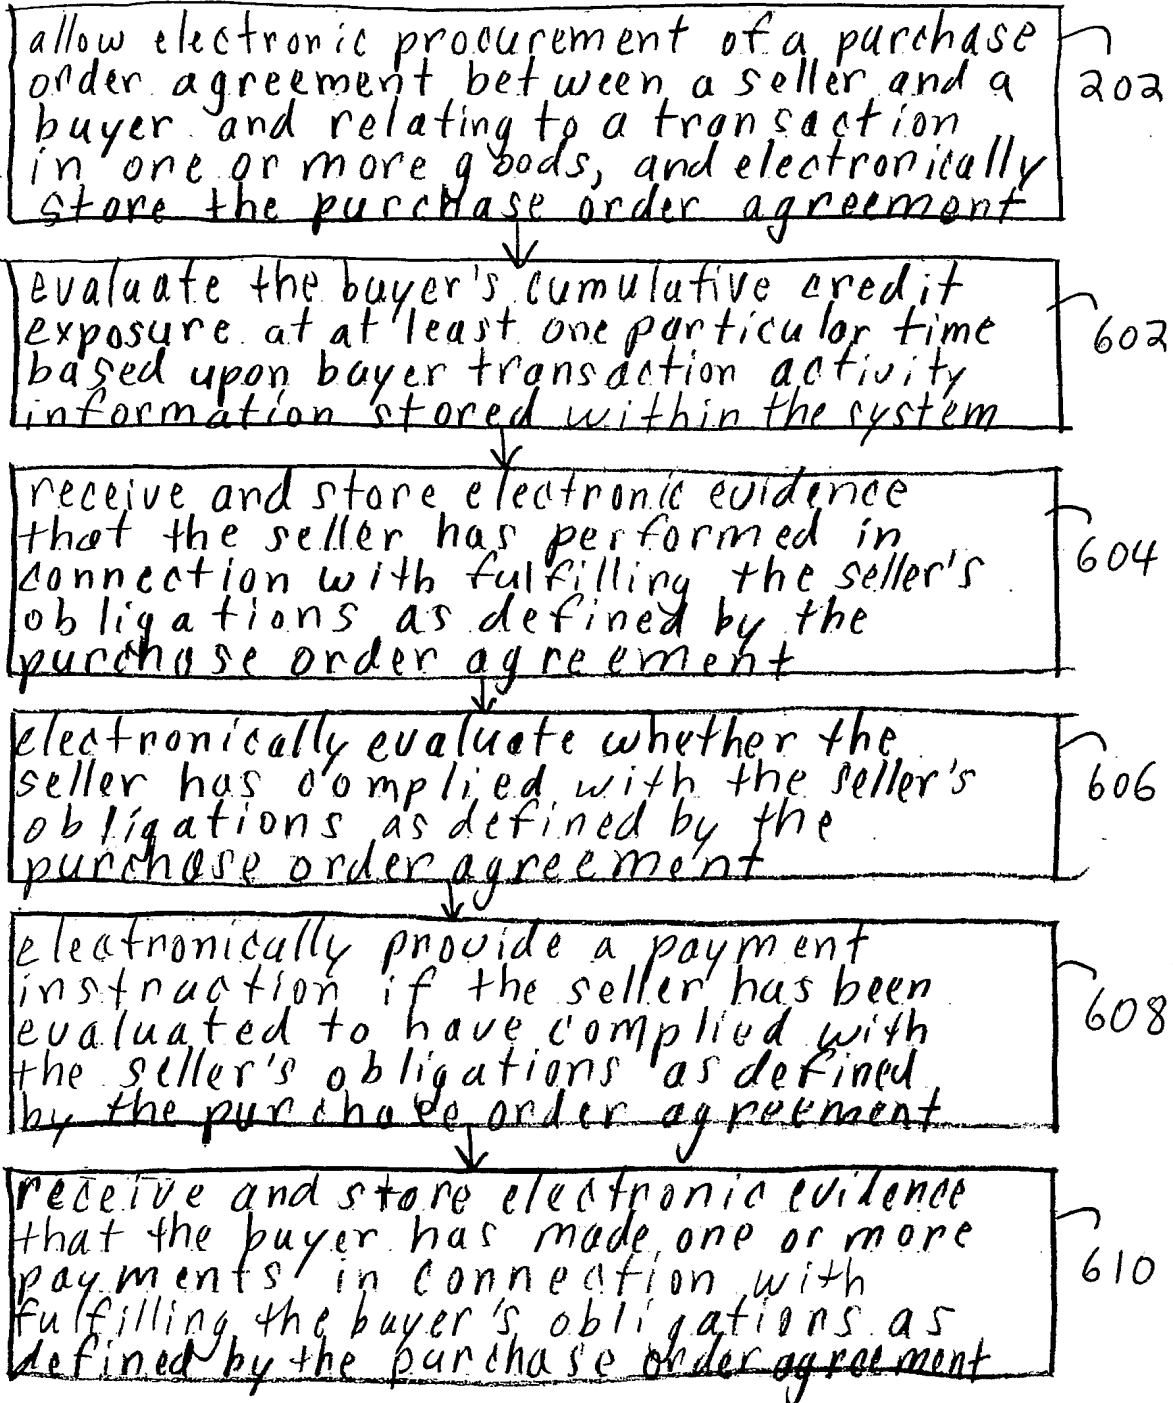 allow electronic procurement of a purchase
order agreement between a seller and a
buyer and relating to a transaction
in one or more goods, and electronically
store the purchase order agreement
202
evaluate the buyer's cumulative credit
exposure at at least one particular time
based upon buyer transaction activity
information stored within the system
602
receive and store electronic evidence
that the seller has performed in
connection with fulfilling the seller's
obligations as defined by the
purchase order agreement
604
electronically evaluate whether the
seller has complied with the seller's
obligations as defined by the
purchase order agreement
606
electronically provide a payment
instruction if the seller has been
evaluated to have complied with
the seller's obligations as defined
by the purchase order agreement
608
receive and store electronic evidence
that the buyer has made one or more
payments in connection with
fulfilling the buyer's obligations as
defined by the purchase order agreement
610